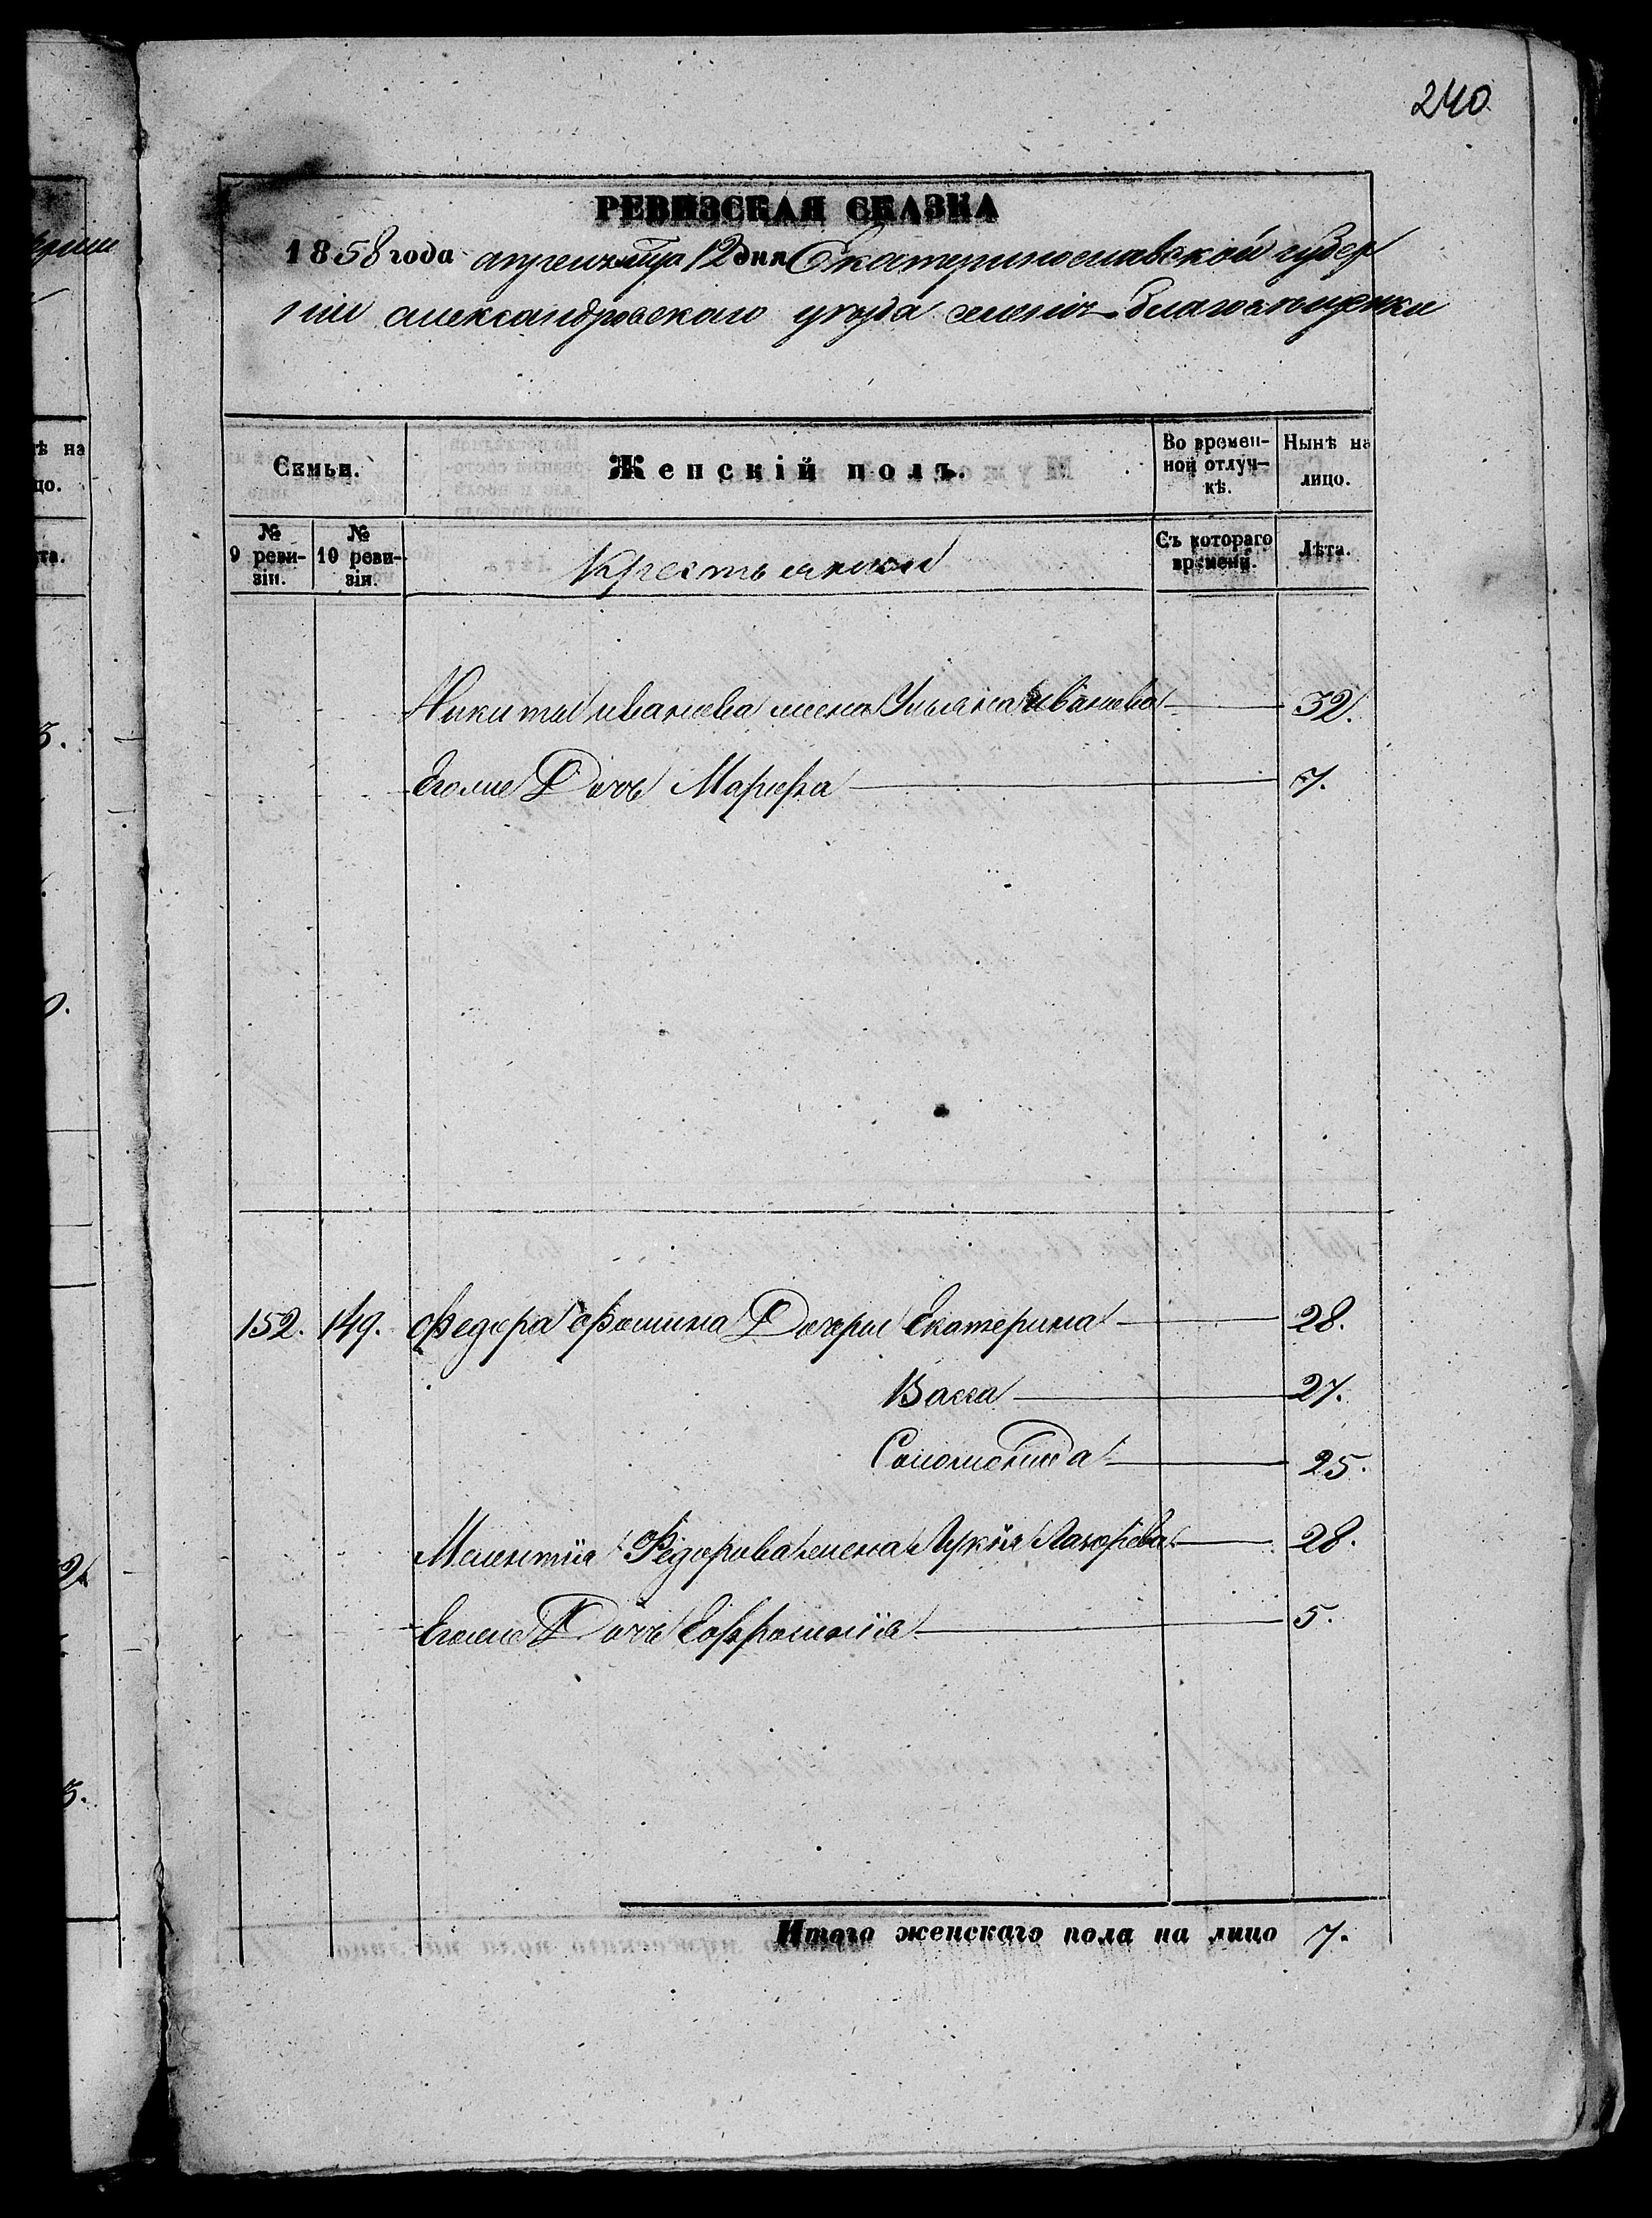 240
РЕВИЗСКАЯ СКАЗКА
1858 года апреля мца 12 дня Екатеринославской губер
ніи александровского уѣзда Благовѣщенки
Семьи. Женскій полъ. Во времен-ной отлуч-кѣ. Нынѣ на лицо.
№ 9 реви-зіи. № 10 реви-зіи. Съ котораго времени. Лѣта.
Никиты иванова жена Ульяна иванова 32.
Егоже Дочь Марфа 7.
152. 149. Федора Фомина Дочери Екатерина 28.
Васса 27.
Соломонида 25.
Мелентія Федорова жена 28.
Егоже Дочь Ефросинія 5.
Итого женскаго пола на лицо 7.